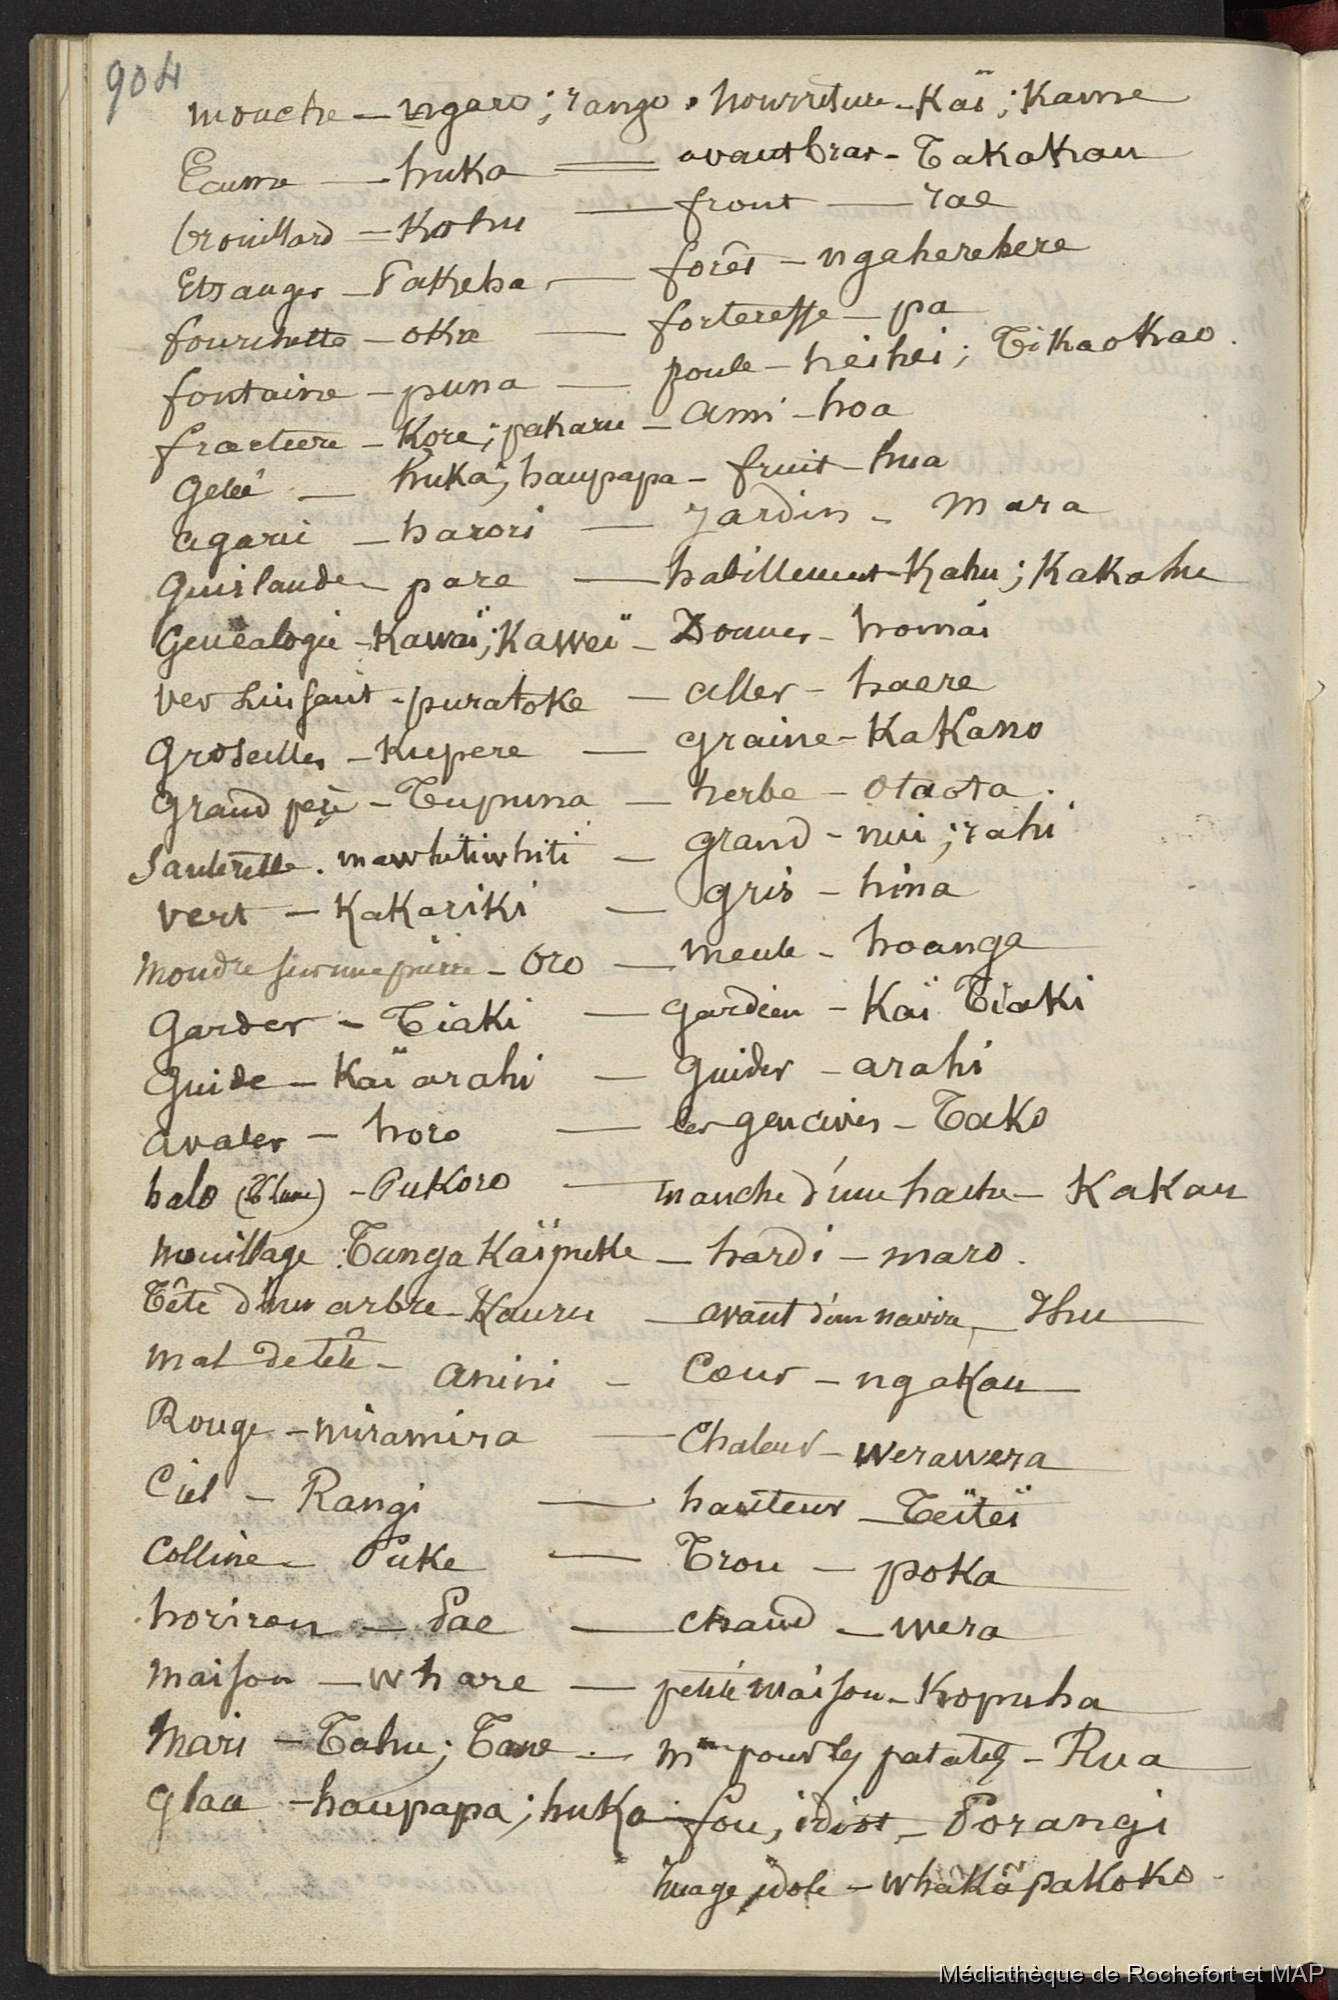 904
mouche - ngaro ; rango . nourriture - Kaï ; Kame
Ecume - huka = avant bras - Takakau
brouillard = Kohu - front - rae
Etranger - Pakeha - forêt - ngaherehere
fourchette - oka - forteresse - pa
fontaine - puna - poule - heihei ; Tikaokao .
fracture - Kore ; pakaru - ami - hoa
Gelée - huka ; haupapa - fruit - hua
agaric - harori - jardin - mara
Guirlande - pare - habillement - Kahu ; Kakahu
Genéalogie - Kawaï ; Kaweï - Donner - homai
ver Luisant - puratoke - aller - haere
Groseilles - Kupere - graine - KaKano
Grand père - Tupuna - herbe - otaota .
Sauterelle . mawhitiwhiti - grand - nui ; rahi
vert - KaKariki - gris - hina
Moudre sur une pierre - Oro - meule - hoanga
Garder - Tiaki - gardien - Kaï Tiaki
Guide - Kaï arahi - guider - arahi
avaler - horo - les gencives - Tako
halo (Lune) - PuKoro - manche d'une hache - KaKau
mouillage . Tunga Kaïpuke - hardi - maro .
Tête d'un arbre - Kauru - avant d'un navire - Ihu
mal de tête - anini - Coeur - ngakau
Rouge - miramira - Chaleur - werawera
Ciel - Rangi - hauteur - Teïteï
Colline - Puke - Trou - poka
horizon - Pae - chaud - wera
maison - whare - petite maison - Kopuha
Mari - Tahu ; Tane - mon pour les patates - Rua
glace - haupapa ; huka - fou, idiot - Porangi
Image, idole - whakapakoko -
Médiathèque de Rochefort et MAP